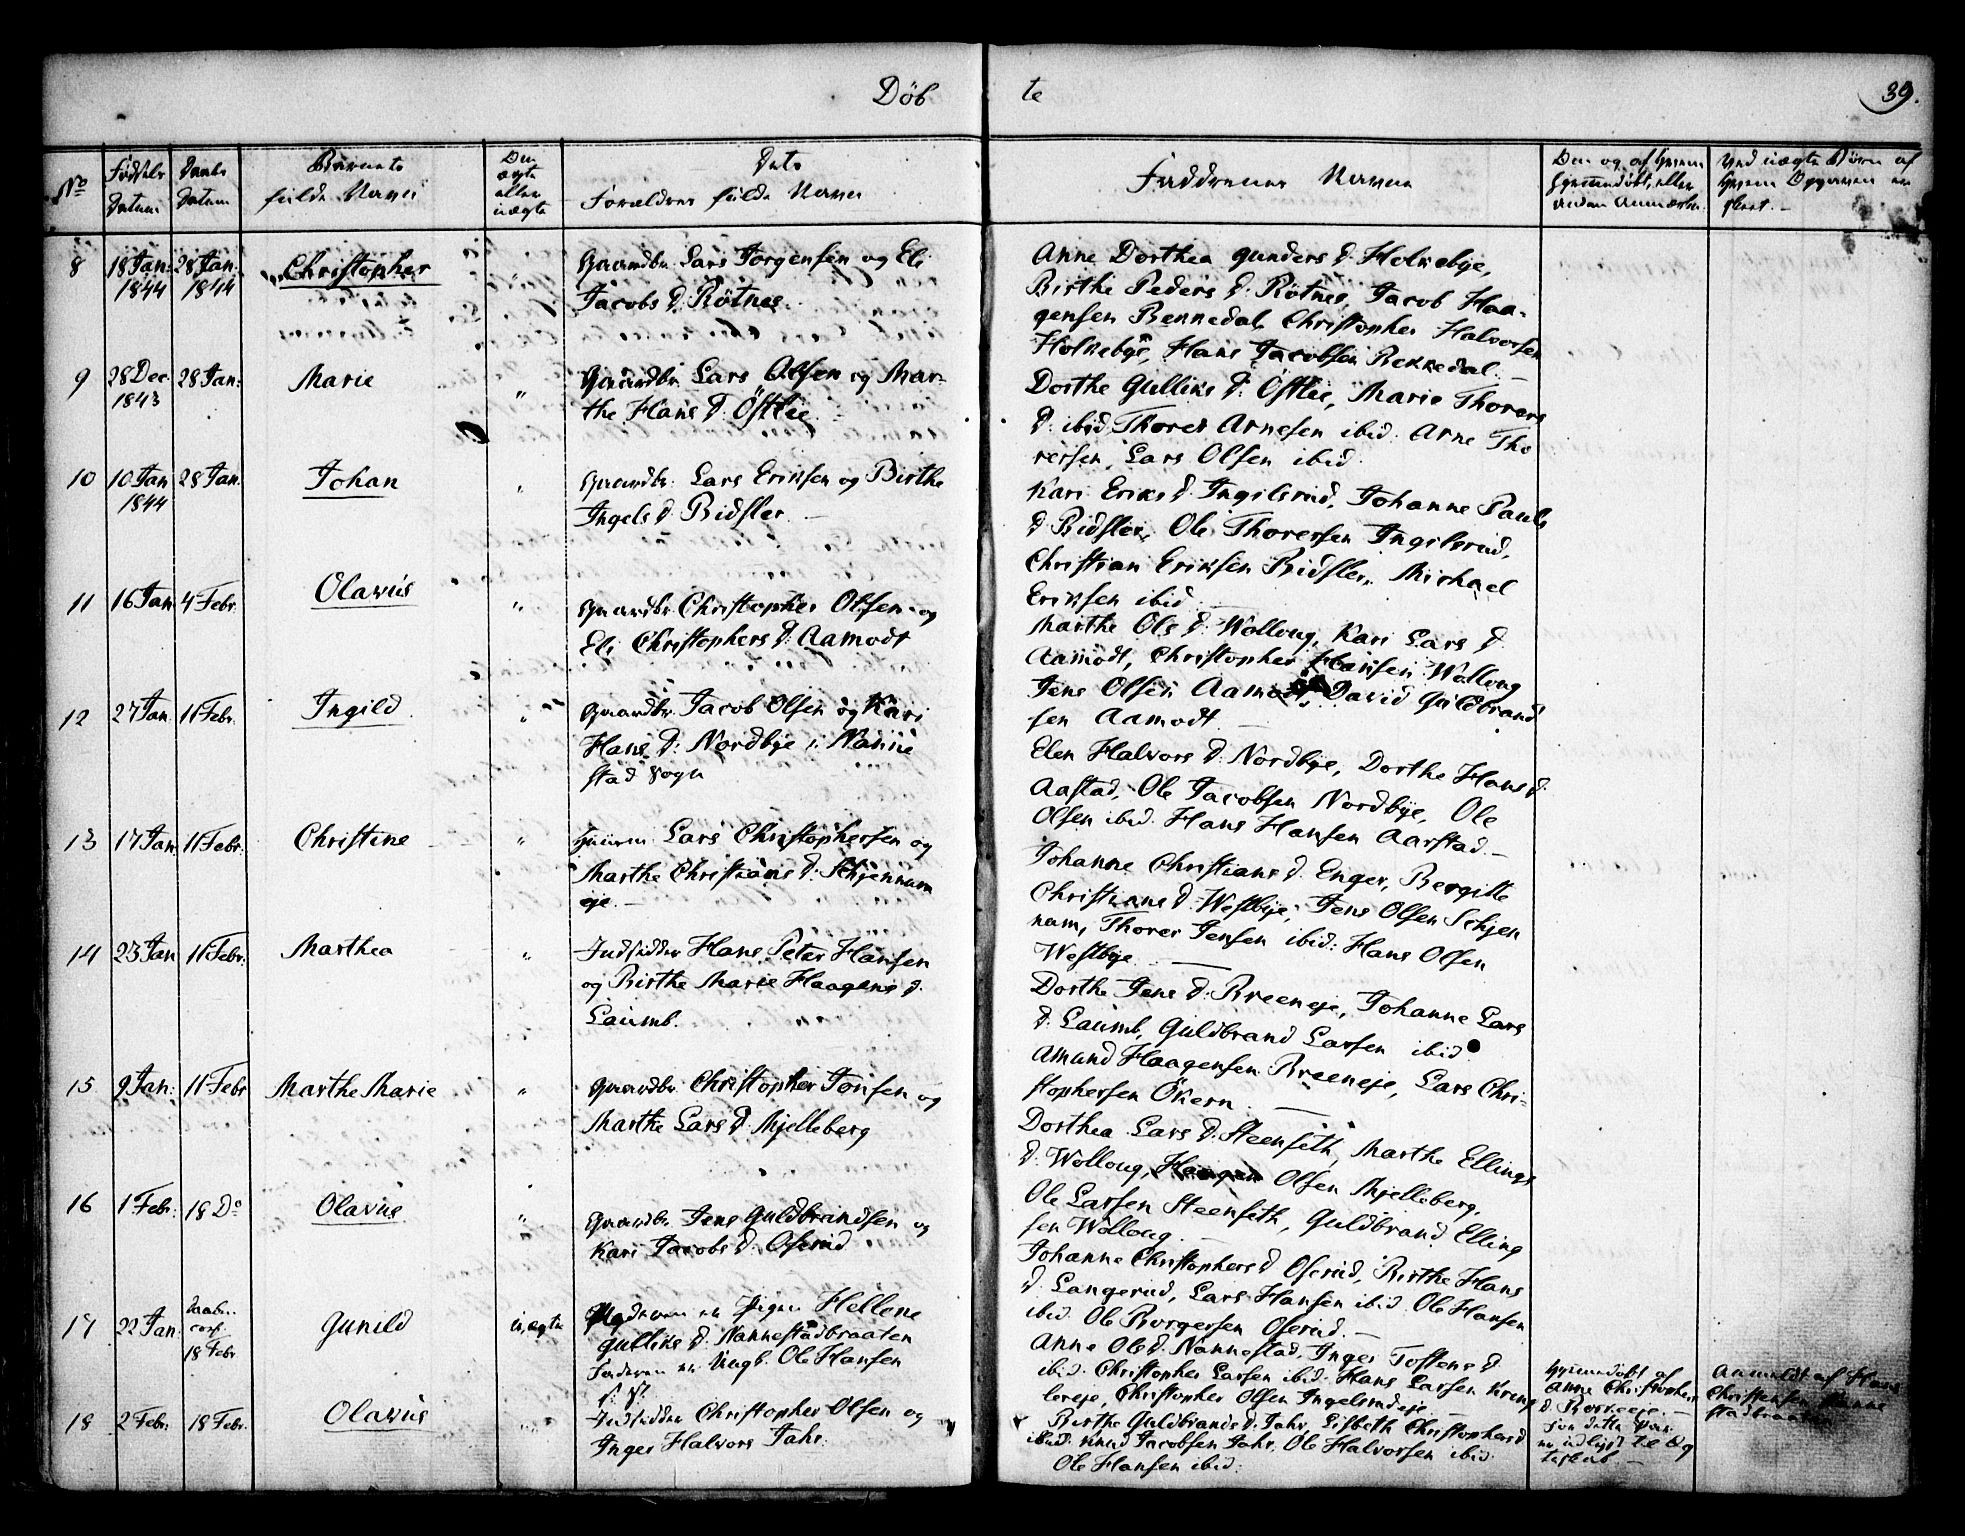 Døb te 39.
No
Fødsels Datum
Daabs Datum
Barnets fulde Navn
Om ægte eller uægte
Dets Forældres fulde Navn
Faddrenes Navne
Om og af hvem hjemmedøbt, eller anden Anmærkn.
Ved uægte Børn af hvem Opgaven er skeet.
8 18 Jan: 1844 28 Jan: 1844 Christopher "
Gaardbr. Lars Jorgensen og Eli
Jacobs d. Rötnes.
Anne Dorthea Gunders d. Holkebye,
Birthe Peders d. Rötnes, Jacob Haa-
gensen Bekkedal, Christopher Halvorsen
Holkebye, Hans Jacobsen Bekkedal.
9 28 Dec. 1843 28 Jan: Marie "
Gaardbr. Lars Olsen og Mar-
the Hans d. Östlie
Dorthe Gulliks d. Östlie, Marie Thorers
d. ibid, Thorer Arnesen ibid. Arne Tho
rersen, Lars Olsen ibid.
10 10 Jan 1844 28 Jan. Johan "
Gaardbr. Lars Eriksen og Birthe
Ingels d. Bidsler
Kari Eriks d. Ingilsrud, Johanne Pauls
d. Bidsler, Ole Thoressen Ingilsrud,
Christian Eriksen Bidsler, Michael
Eriksen ibid
11 16 Jan 4 Febr. Olavus "
Gaardbr. Christopher Olsen og
Eli Christophers d. Aamodt
Marthe Ols d. Wolloug, Kari Lars d.
Aamodt, Christopher Hansen Wolloug
Jens Olsen Aamodt, David Guldbrand
sen Aamodt
12 27 Jan. 11 Febr. Ingild "
Gaardbr. Jacob Olsen og Kari
Hans d: Nordbye i Nanne
stad Sogn
Elen Halvors d. Nordbye, Dorthe Hans d.
Aastad, Ole Jacobsen Nordbye, Ole
Olsen ibid. Hans Hansen Aarstad
13 17 Jan. 11 Febr. Christine "
Lars Christophersen og
Marthe Christians d: Schjennum
eje.
Johanne Christians d. Enger, Bergitte
Christians d. Westbye, Jens Olsen Schjen
num, Thorer Jensen ibid: Hans Olsen
Westbye
14 23 Jan 11 Febr: Marthea "
Indsidder Hans Peter Hansen
og Birthe Marie Haagens d.
Laumb.
Dorthe Jens d. Breeneje, Johanne Lars
d. Laumb, Guldbrand Larsen ibid
Amund Haagensen Breeneje, Lars Chri-
stophersen Ökern
15 9 Jan: 11 Febr Marthe Marie "
Gaardbr. Christopher Tonsen og
Marthe Lars d. Mjelleberg
Dorthea Lars d. Steenseth, Marthe Ellings
d. Wolloug, Haagen Olsen Mjelleberg,
Ole Larsen Steenseth, Guldbrand Elling
sen Wolloug.
16 1 Febr: 18 Do Olavus "
Gaardbr. Jens Guldbrandsen og
Kari Jacobs d. Oserud
Johanne Christophers d Oserud, Birthe Hans
d. Langerud, Lars Hansen ibid. Ole Hansen
ibid. Ole Borgersen Oserud.
17 22 Jan: 18 Febr Gunild uægte
Moderen er Pigen Hellene
Gulliks d. Nannestadbraaten
Faderen er Ungk. Ole Hansen
Anne Ole d. Nannestad, Inger Tostens d
ibid. Christopher Larsen ibid. Hans Larsen
Christopher Olsen Ingelsrudeje
Hjemmedøbt af
Anne Christophers
d.
Anmeldt af Hans
Christensen Nanne
stadbraaten
18 2 Febr. 18 Febr. Olavus "
Indsidder Christopher Olsen og
Inger Halvors Jahr.
Birthe Guldbrands d. Jahr, Lisbeth Christophers d
ibid. Knud Jacobsen Jahr. Ole Halvorsen ibid.
Ole Hansen ibid.